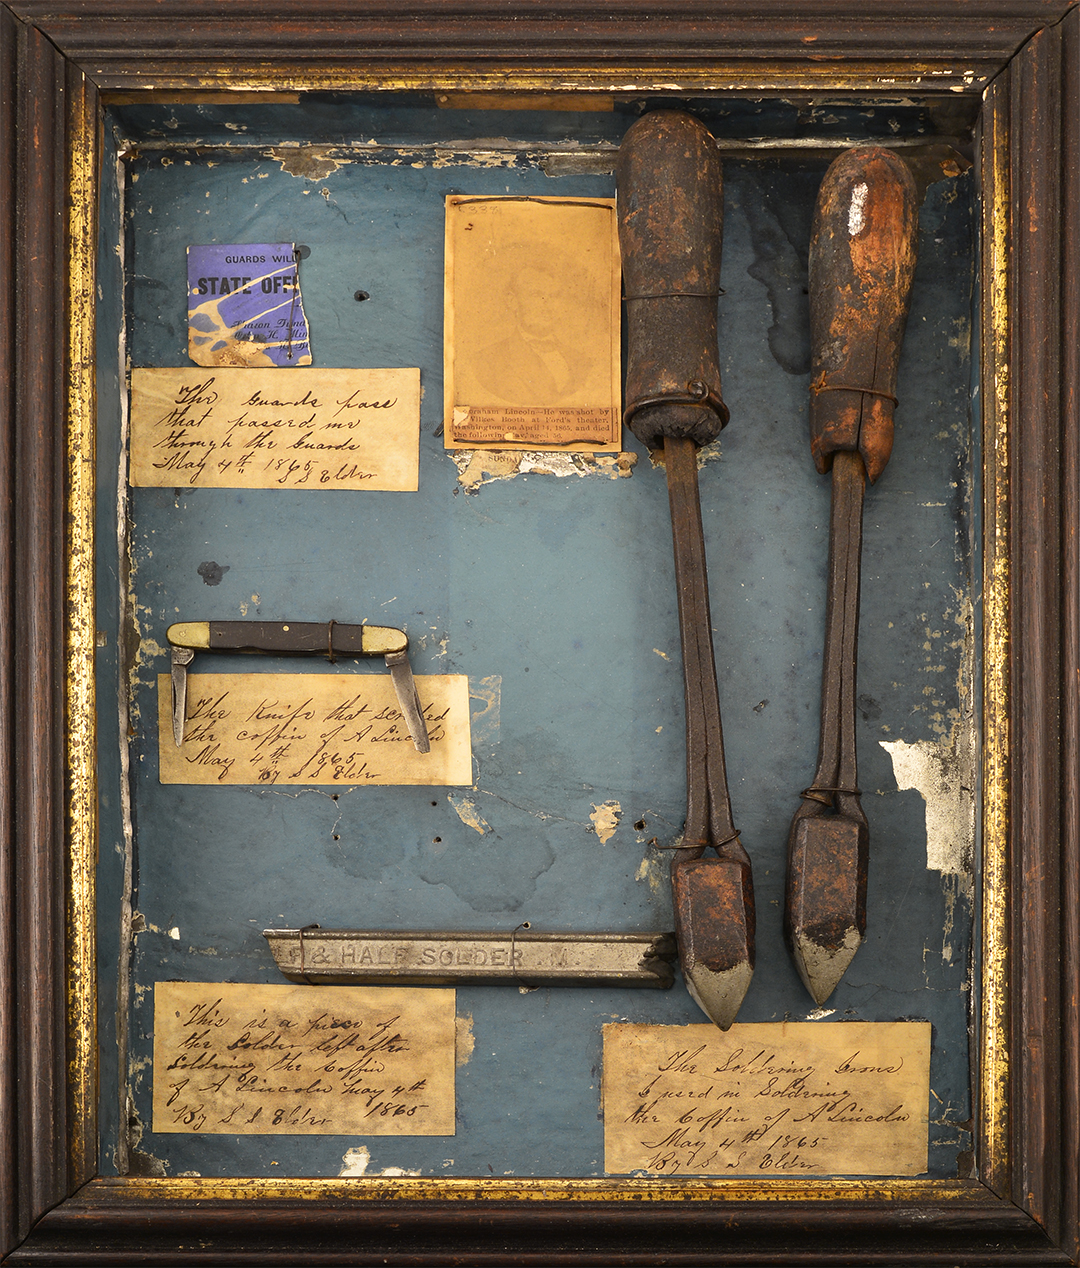 GUARDS WILL
STATE OFFI
The Guards pass
that passed me
through the Guards
May 4th 1865
S S Elder
raham Lincoln—He was shot by
Wilkes Booth at Ford's theater,
Washington, on April 14, 1865, and died
the following day, aged 56
The Knife that scraped
the coffin of A Lincoln
May 4th 1865
By S S Elder
& HALF SOLDER
This is a piece of
the Solder left after
Soldering the Coffin
of A Lincoln May 4th
By S S Elder 1865
The Soldering Irons
I used in Soldering
the Coffin of A Lincoln
May 4th 1865
By S S Elder